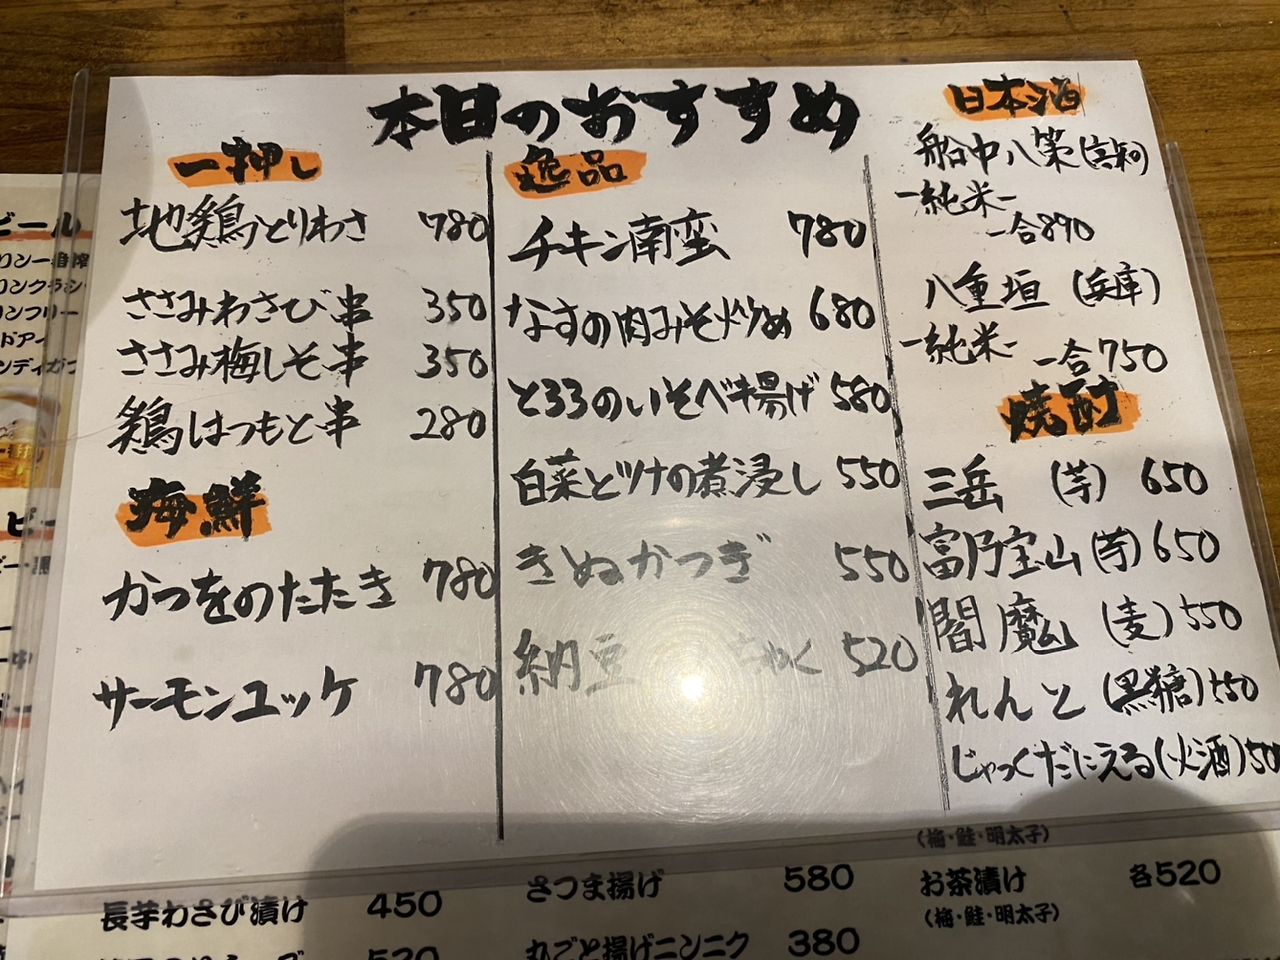 本日のおすすめ
一押し
地鶏とりわさ 780
ささみわさび串 350
ささみ梅しそ串 350
鶏はつもと串 280
海鮮
かつをのたたき 780
サーモンユッケ 780
逸品
チキン南蛮 780
なすの肉みそ炒め 680
とろろのいそべ揚げ 580
白菜とツナの煮浸し 550
きぬかつぎ 550
納豆 ちゃく 520
日本酒
船中八策(高知)
-純米-
一合890
八重垣 (兵庫)
-純米-
一合750
焼酎
三岳 (芋) 650
富乃宝山(芋) 650
閻魔 (麦) 550
れんと (黒糖) 550
じゃっくだにえる(火酒)
ビール
ドアー
(梅・鮭・明太子)
長芋わさび漬け 450
さつま揚げ 580
お茶漬け 各520
(梅・鮭・明太子)
丸ごと揚げニンニク 380